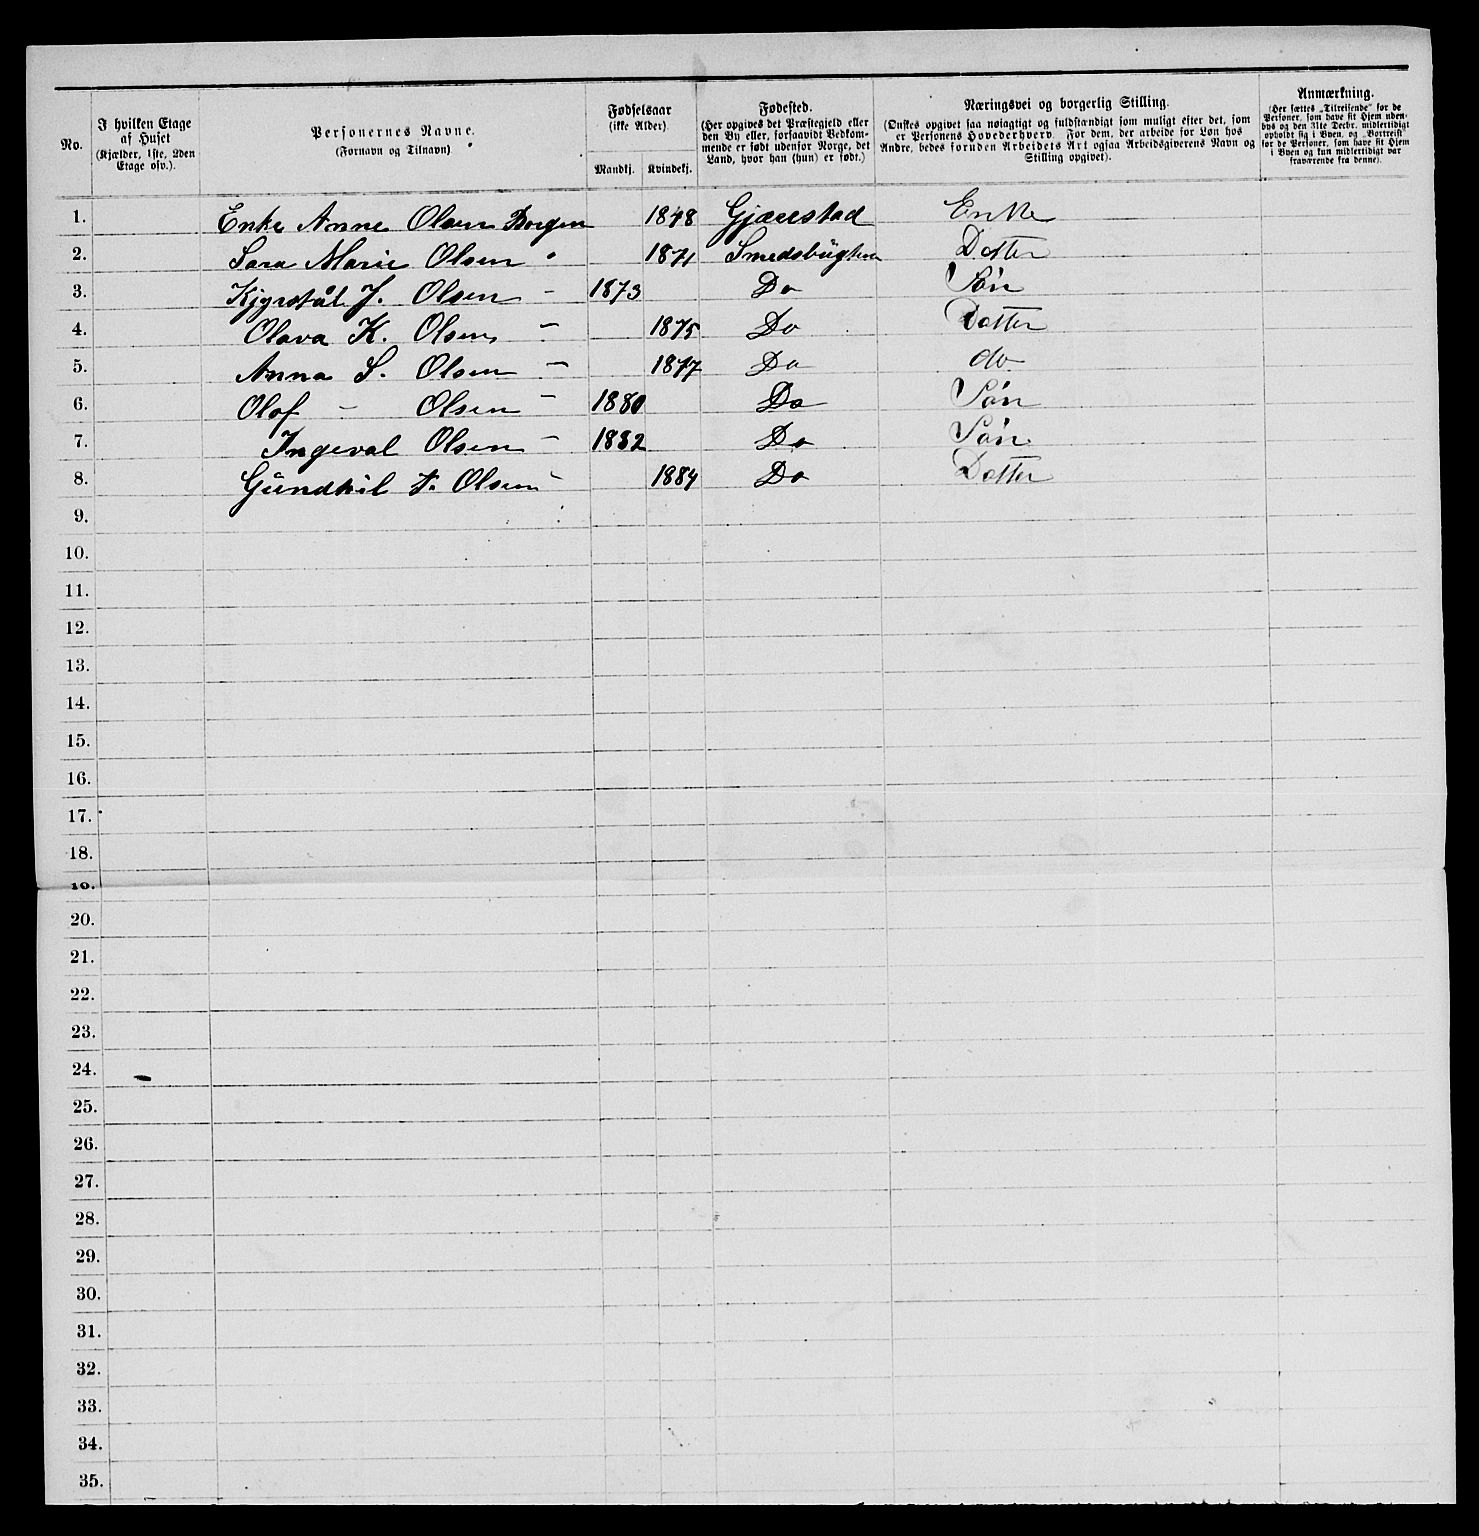 No.
I hvilken Etage
af Huset
(Kjælder, 1ste, 2den
Etage osv.).
Personernes Navne.
(Fornavn og Tilnavn)
Fødselsaar
(ikke Alder).
Mandkj. Kvindekj.
Fødested.
(Her opgives det Præstegjeld eller
den By eller, forsaavidt Vedkom-
mende er født udenfor Norge, det
Land, hvor han (hun) er født.)
Næringsvei og borgerlig Stilling.
(Ønskes opgivet saa nøiagtigt og fuldstændigt som muligt efter det, som
er Personens Hovederhverv. For dem, der arbeide for Løn hos
Andre, bedes foruden Arbeidets Art ogsaa Arbeidsgiverens Navn og
Stilling opgivet).
Anmærkning.
(Her sættes „Tilreisende“ for de
Personer, som have sit Hjem uden-
bys og den 31te Decbr. midlertidigt
opholdt sig i Byen, og „Bortreist“
for de Personer, som have sit Hjem
i Byen og kun midlertidigt var
fraværende fra denne).
1. Enke Anne Olsen Borgen 1848 Gjærestad Enke
2. Sara Marie Olsen 1871 Dotter
3. J. Olsen - 1873 Do Søn
4. Olava K. Olsen - 1875 Do Dotter
5. Anna S. Olsen - 1877 Do do
6. Olof - Olsen - 1880 Do Søn
7. Ingeval Olsen - 1882 Do Søn
8. Gundhil Olsen - 1884 Do Dotter
9.
10.
11.
12.
13.
14.
15.
16.
17.
18.
19.
20.
21.
22.
23.
24.
25.
26.
27.
28.
29.
30.
31.
32.
33.
34.
35.